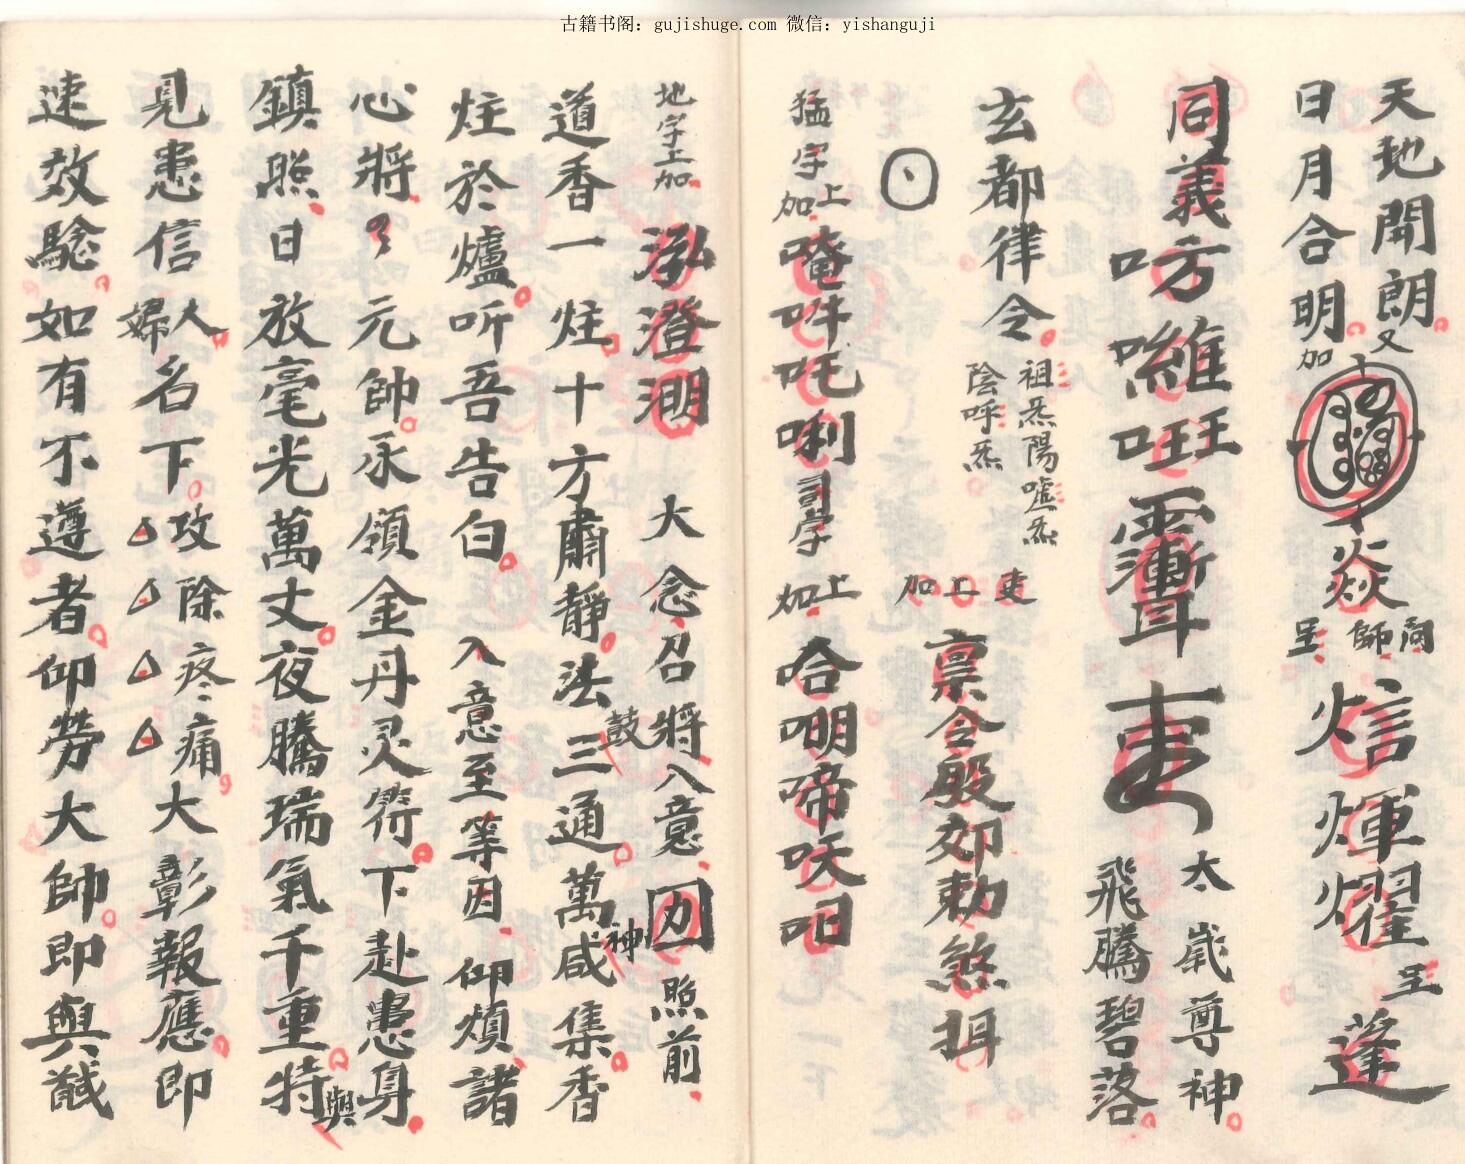 古籍书阁：gujishuge.com 微信：yishanguji
天地開朗又
日月合明加
焱
呈 師
焰煇耀呈蓬
同義
哼囉㕵
吏
太歲尊神
飛騰碧落
玄都律令
祖炁陽噓炁
陰呼炁
吏上加
禀令殿勅煞抇
猛字上加
唵吽吒唎
上加
哈啼
地字上加
泓澄
大念召將入意
照前
道香一炷十方肅靜法鼓三通萬神咸集香
炷於爐听吾告白 入意至等因 仰煩諸
心將々元帥永領金丹灵符下赴患身
鎮照日放毫光萬丈夜騰瑞氣千重特與
見患信人婦名下攻除疼痛大彰報應即
速效驗如有不遵者仰勞大帥即與馘